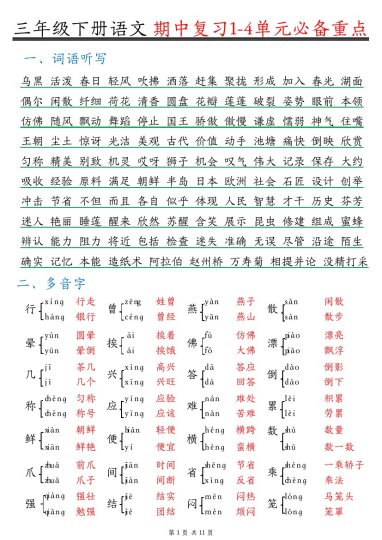 三年级下册语文 期中复习1-4单元必备重点
一、词语听写
乌黑 活泼 春日 轻风 吹拂 洒落 赶集 聚拢 形成 加入 春光 湖面
偶尔 闲散 纤细 荷花 清香 圆盘 花瓣 莲蓬 破裂 姿势 眼前 本领
仿佛 随风 飘动 舞蹈 停止 国王 骄傲 傲慢 谦虚 懦弱 神气 住嘴
王朝 尘土 惊讶 光洁 美观 古代 价值 动手 池塘 痛快 倒映 欣赏
匀称 精美 别致 机灵 哎呀 狮子 机会 叹气 伟大 记录 保存 大约
吸收 经验 原料 满足 朝鲜 半岛 日本 欧洲 社会 石匠 设计 创举
冲击 节省 不但 而且 各自 似乎 体现 人民 智慧 才干 历史 芬芳
迷人 艳丽 睡莲 醒来 欣然 苏醒 含笑 展示 昆虫 修建 组成 蜜蜂
辨认 能力 阻力 将近 包括 检查 迷失 准确 无误 尽管 沿途 陌生
确实 记忆 本能 造纸术 阿拉伯 赵州桥 万寿菊 相提并论 没精打采
二、多音字
行 xíng 行走 háng 银行 曾 zēng 姓曾 céng 曾经 燕 yàn 燕子 yān 燕山 散 sǎn 闲散 sàn 散步
晕 yùn 圆晕 yūn 晕倒 挨 āi 挨着 ái 挨饿 佛 fú 仿佛 fó 大佛 漂 piào 漂亮 piāo 漂浮
几 jī 茶几 jǐ 几个 兴 xìng 高兴 xīng 兴旺 答 dā 答应 dá 回答 倒 dào 倒影 dǎo 倒下
称 chèn 匀称 chēng 称号 应 yìng 应验 yīng 应该 难 nán 难处 nàn 苦难 累 lěi 积累 léi 劳累
鲜 xiǎn 朝鲜 xiān 鲜艳 便 biàn 轻便 pián 便宜 横 héng 横跨 hèng 蛮横 数 shù 数量 shǔ 数一数
爪 zhuǎ 前爪 zhuǎ 爪子 间 jiān 时间 jiàn 间断 省 shěng 节省 xǐng 反省 乘 shèng 一乘轿子 chéng 乘法
强 qiáng 强壮 qiǎng 勉强 结 jiē 结实 jié 团结 闷 mēn 闷热 mèn 烦闷 笼 lóng 马笼头 lǒng 笼罩
第 1 页 共 11 页